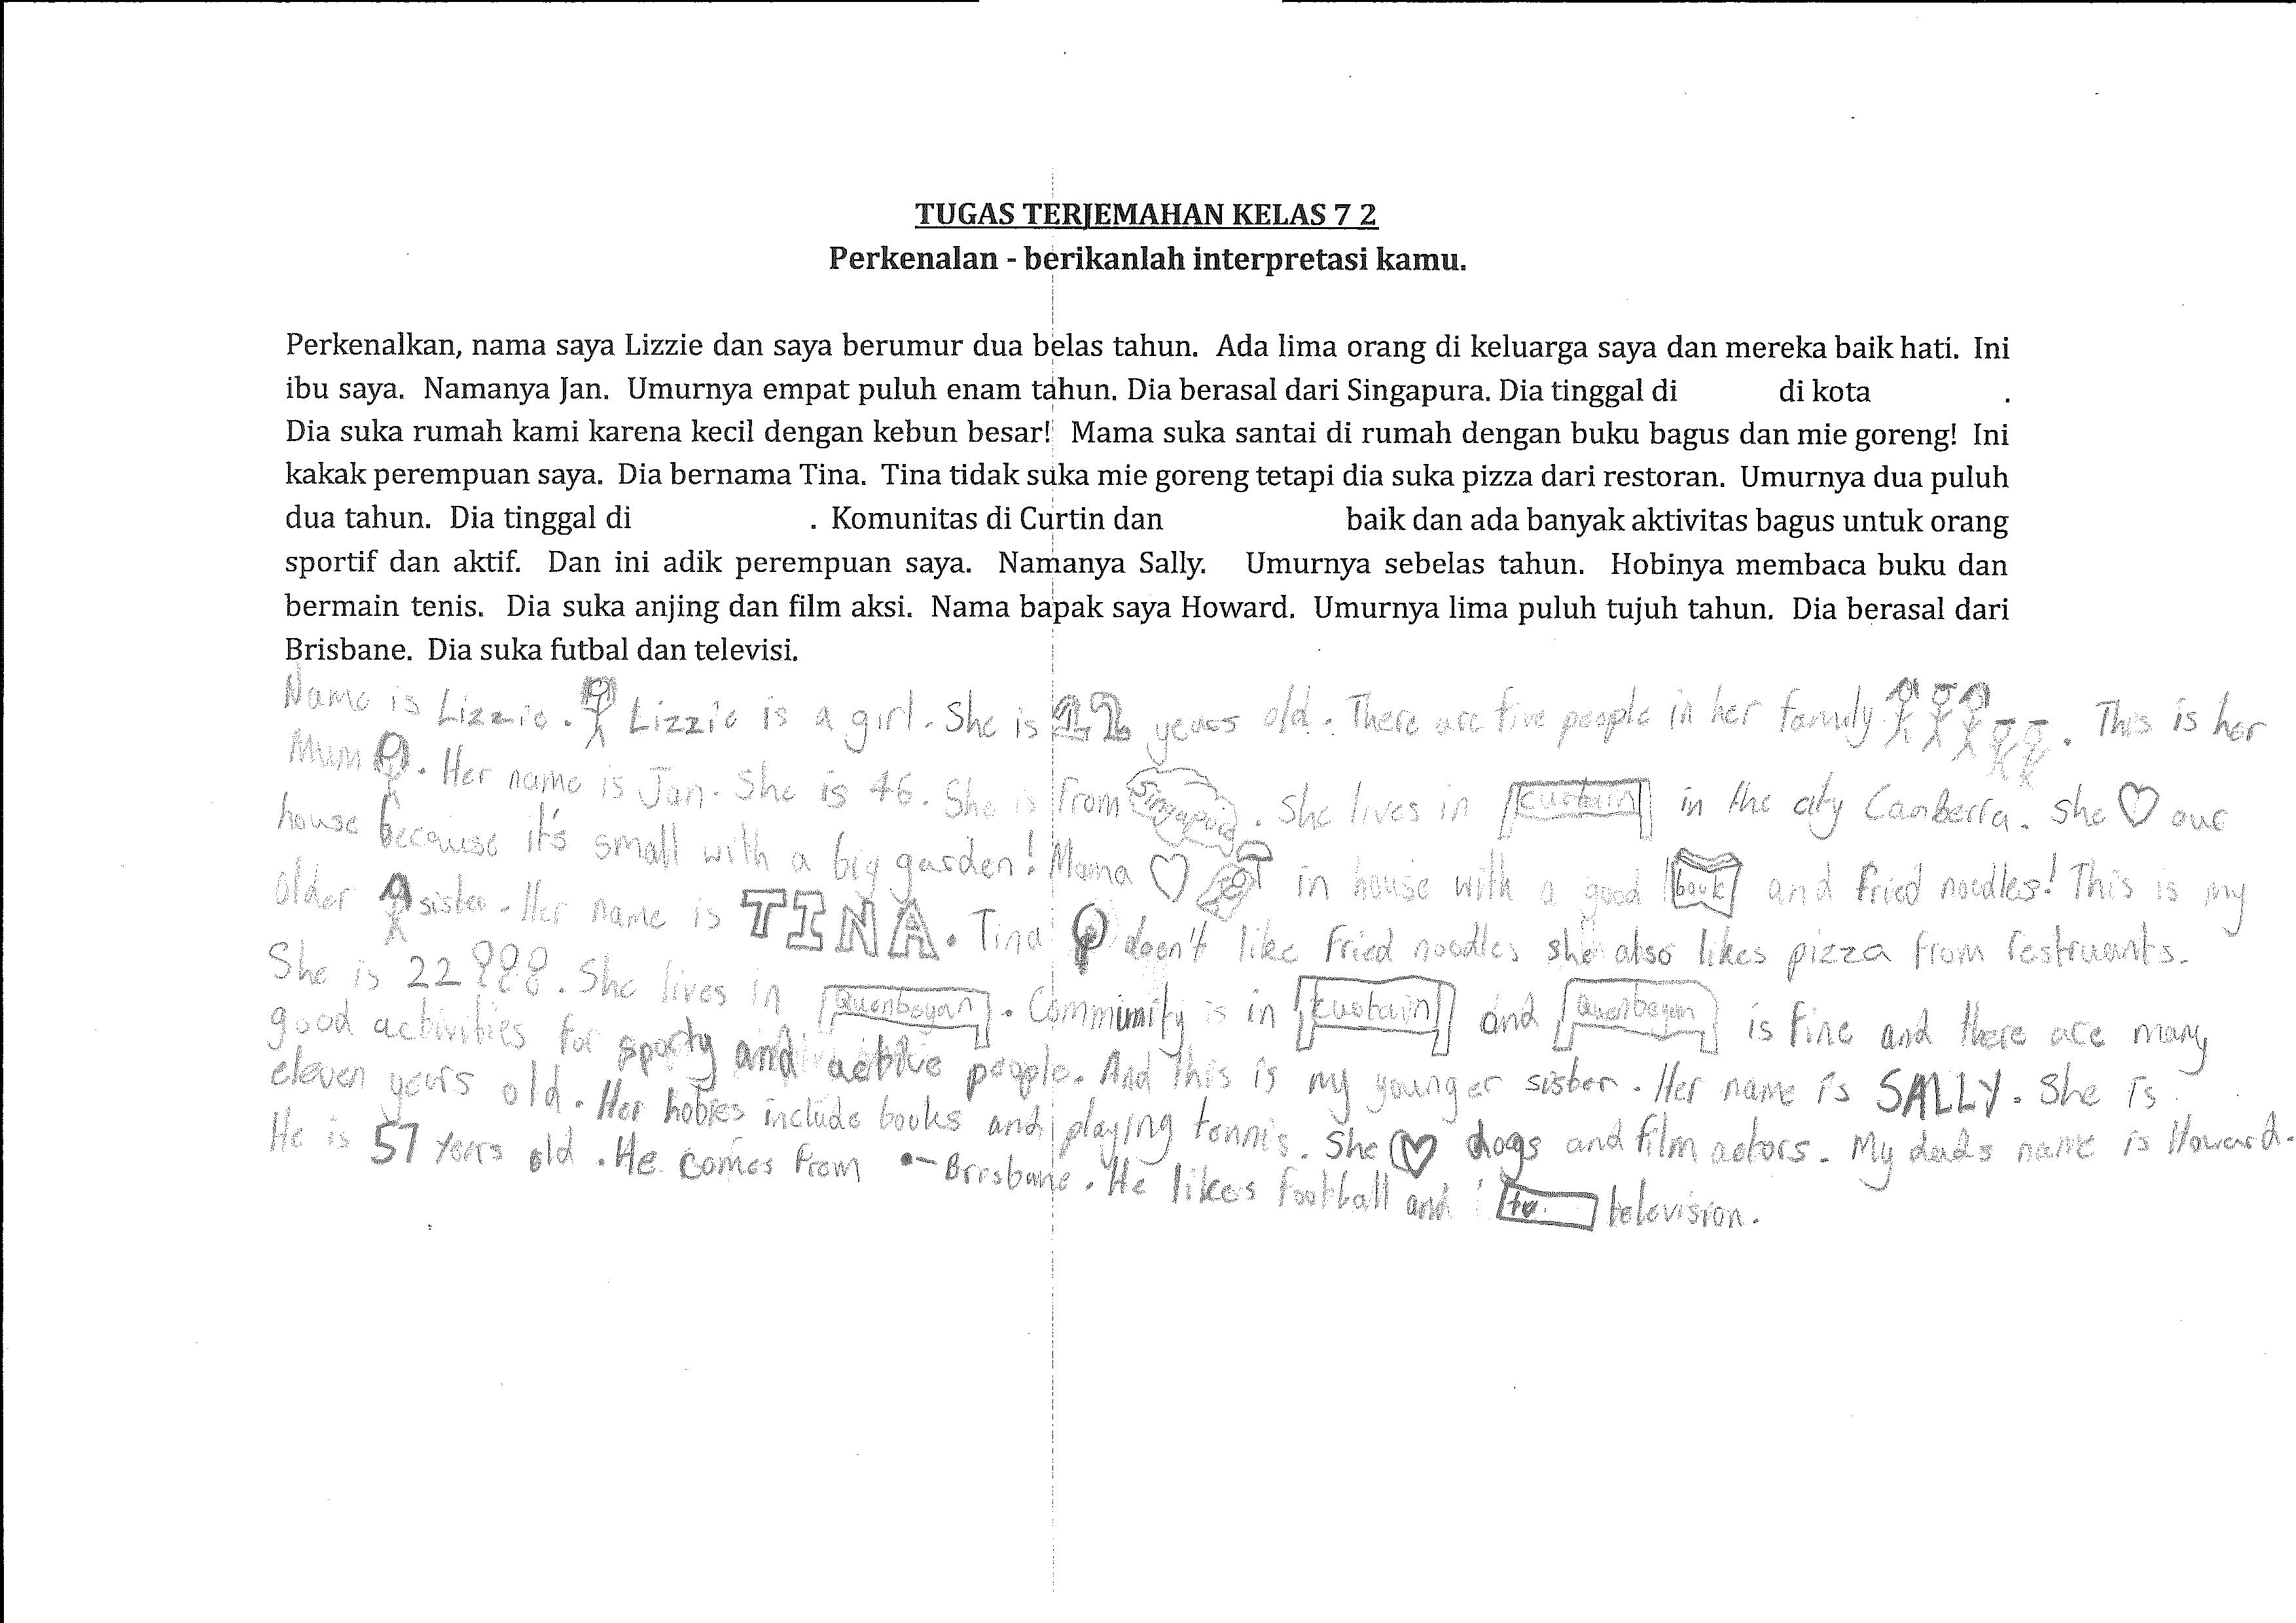 TUGAS TERJEMAHAN KELAS 7 2
Perkenalan - berikanlah interpretasi kamu.
Perkenalkan, nama saya Lizzie dan saya berumur dua belas tahun. Ada lima orang di keluarga saya dan mereka baik hati. Ini
ibu saya. Namanya Jan. Umurnya empat puluh enam tahun. Dia berasal dari Singapura. Dia tinggal di di kota .
Dia suka rumah kami karena kecil dengan kebun besar! Mama suka santai di rumah dengan buku bagus dan mie goreng! Ini
kakak perempuan saya. Dia bernama Tina. Tina tidak suka mie goreng tetapi dia suka pizza dari restoran. Umurnya dua puluh
dua tahun. Dia tinggal di . Komunitas di Curtin dan baik dan ada banyak aktivitas bagus untuk orang
sportif dan aktif. Dan ini adik perempuan saya. Namanya Sally. Umurnya sebelas tahun. Hobinya membaca buku dan
bermain tenis. Dia suka anjing dan film aksi. Nama bapak saya Howard. Umurnya lima puluh tujuh tahun. Dia berasal dari
Brisbane. Dia suka futbal dan televisi.
Name is Lizzie. Lizzie is a girl. She is 12 years old. There are five people in her family. This is her
Mum. Her name is Jan. She is 46. She is from . She lives in Curtain in the city Canberra. She ♡ our
house because it's small with a big garden! Mama ♡ in house with a good book and fried noodles! This is my
older sister. Her name is TINA. Tina doen't like fried noodles she also likes pizza from restruants.
She is 22. She lives in Quenbeyan. Community is in Custain and Quenbeyan is fine and there are many
good activities for sporty and active people. And this is my younger sister. Her name is SALLY. She is
eleven years old. Her hobies include books and playing tennis. She ♡ dogs and film actors. My dads name is Howard.
He is 57 years old. He comes from Brisbane. He likes football and tv television.